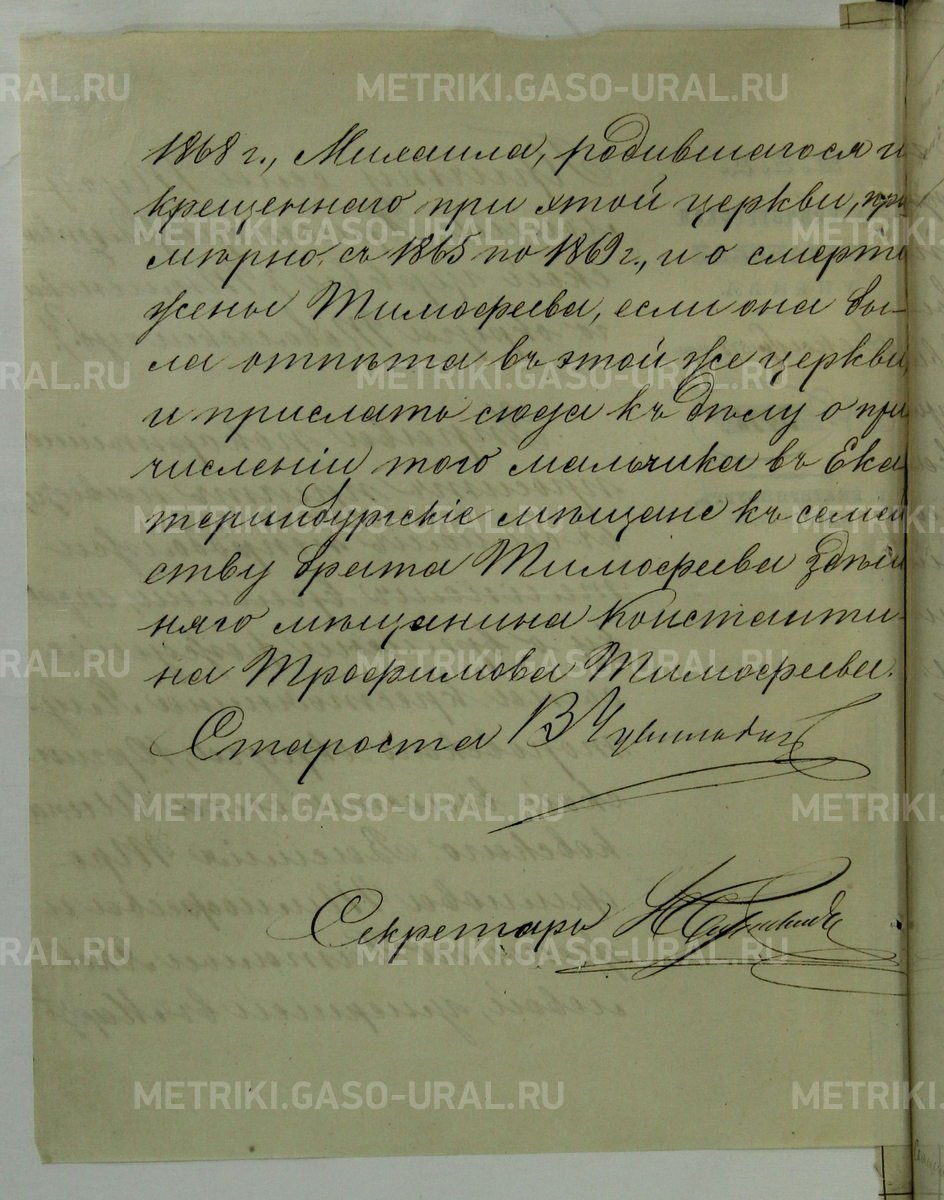 1868 г., Михаила, родившагося и
крещеннаго при этой церкви, при
мѣрно, съ 1865 по 1869 г., и о смерти
жены Тимофеева, если она бы-
ла отпѣта въ этой же церкви,
и прислать сюда къ дѣлу о при
численіи того мальчика въ Ека
теринбургскіе мѣщане къ семей
ству брата Тимофеева здѣш
няго мѣщанина Константи-
на Трофимова Тимофеева.
Староста В
Секретарь
METRIKI.GASO-URAL.RU